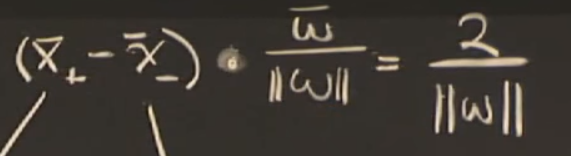 (x̄₊ - x̄₋) · w̄/||w|| = 2/||w||